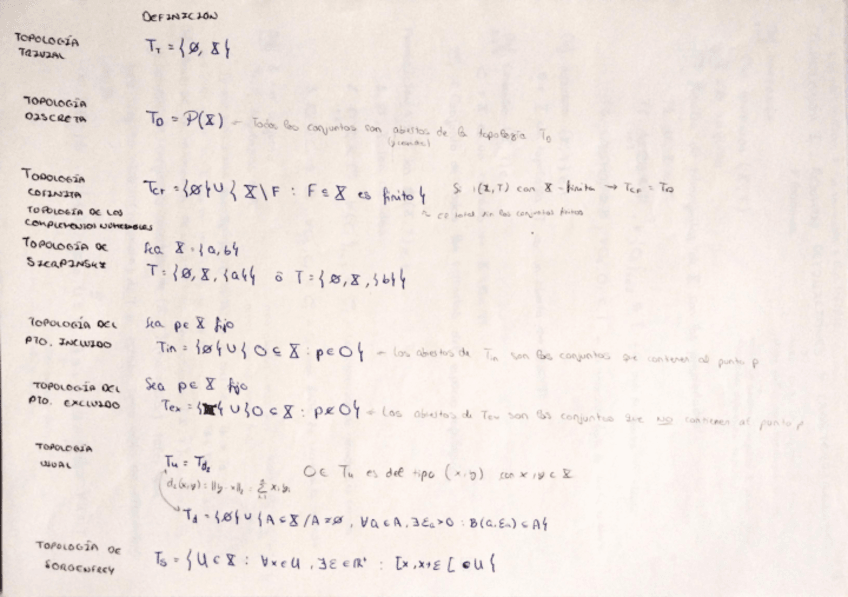 DEFINICIÓN
TOPOLOGÍA TRIVIAL
T_T = {∅, X}
TOPOLOGÍA DISCRETA
T_D = P(X) - Todos los conjuntos son abiertos de la topología T_D
TOPOLOGÍA COFINITA
T_CF = {∅} ∪ { X \ F : F ⊆ X es finito }
Si (X,T) con X finito → T_CF = T_D
TOPOLOGÍA DE LOS COMPLEMENTOS NUMERABLES
TOPOLOGÍA DE SIERPINSKY
Sea X = {a,b}
T = {∅, X, {a}} ó T = {∅, X, {b}}
TOPOLOGÍA DEL PTO. INCLUIDO
Sea p ∈ X fijo
T_in = {∅} ∪ { O ⊆ X : p ∈ O } - Los abiertos de T_in son los conjuntos que contienen al punto p
TOPOLOGÍA DEL PTO. EXCLUIDO
Sea p ∈ X fijo
∪ { O ⊂ X : p ∉ O } - Los abiertos de T_ex son los conjuntos que NO contienen al punto p
TOPOLOGÍA USUAL
T_u = T_d₂
O ∈ T_u es del tipo (x,y) con x,y ∈ X
T_d = {∅} ∪ { A ⊂ X / A ≠ ∅, ∀a ∈ A, ∃ε_a > 0 : B(a, ε_a) ⊂ A }
TOPOLOGÍA DE SORGENFREY
T_S = { U ⊂ X : ∀x ∈ U, ∃ε ∈ ℝ⁺ : [x, x+ε[ ⊂ U }